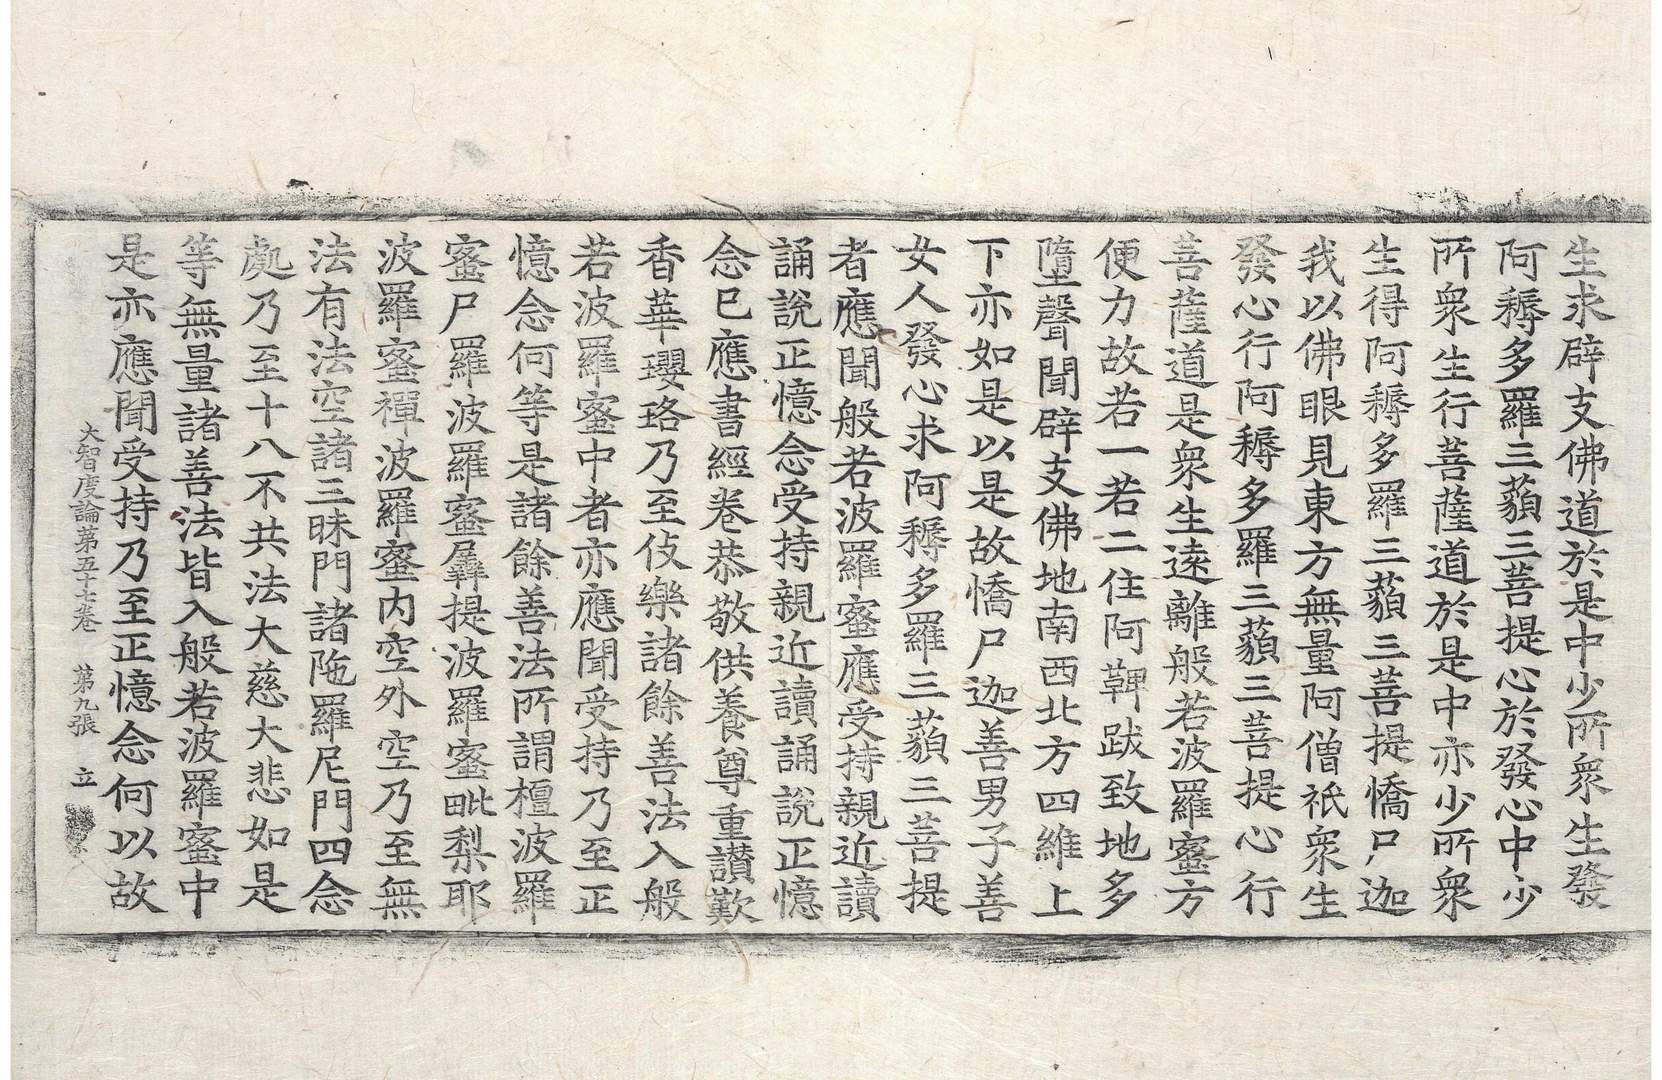 生求辟支佛道於是中少所衆生發
阿耨多羅三藐三菩提心於發心中少
所衆生行菩薩道於是中亦少所衆
生得阿耨多羅三藐三菩提憍尸迦
我以佛眼見東方無量阿僧祇衆生
發心行阿耨多羅三藐三菩提心行
菩薩道是衆生遠離般若波羅蜜方
便力故若一若二住阿鞞跋致地多
墮聲聞辟支佛地南西北方四維上
下亦如是以是故憍尸迦善男子善
女人發心求阿耨多羅三藐三菩提
者應聞般若波羅蜜應受持親近讀
誦說正憶念受持親近讀誦說正憶
念已應書經卷恭敬供養尊重讚歎
香華瓔珞乃至伎樂諸餘善法入般
若波羅蜜中者亦應聞受持乃至正
憶念何等是諸餘善法所謂檀波羅
蜜尸羅波羅蜜羼提波羅蜜毗梨耶
波羅蜜禪波羅蜜内空外空乃至無
法有法空諸三昧門諸陁羅尼門四念
處乃至十八不共法大慈大悲如是
等無量諸善法皆入般若波羅蜜中
是亦應聞受持乃至正憶念何以故
大智度論第五十七卷 第九張 立